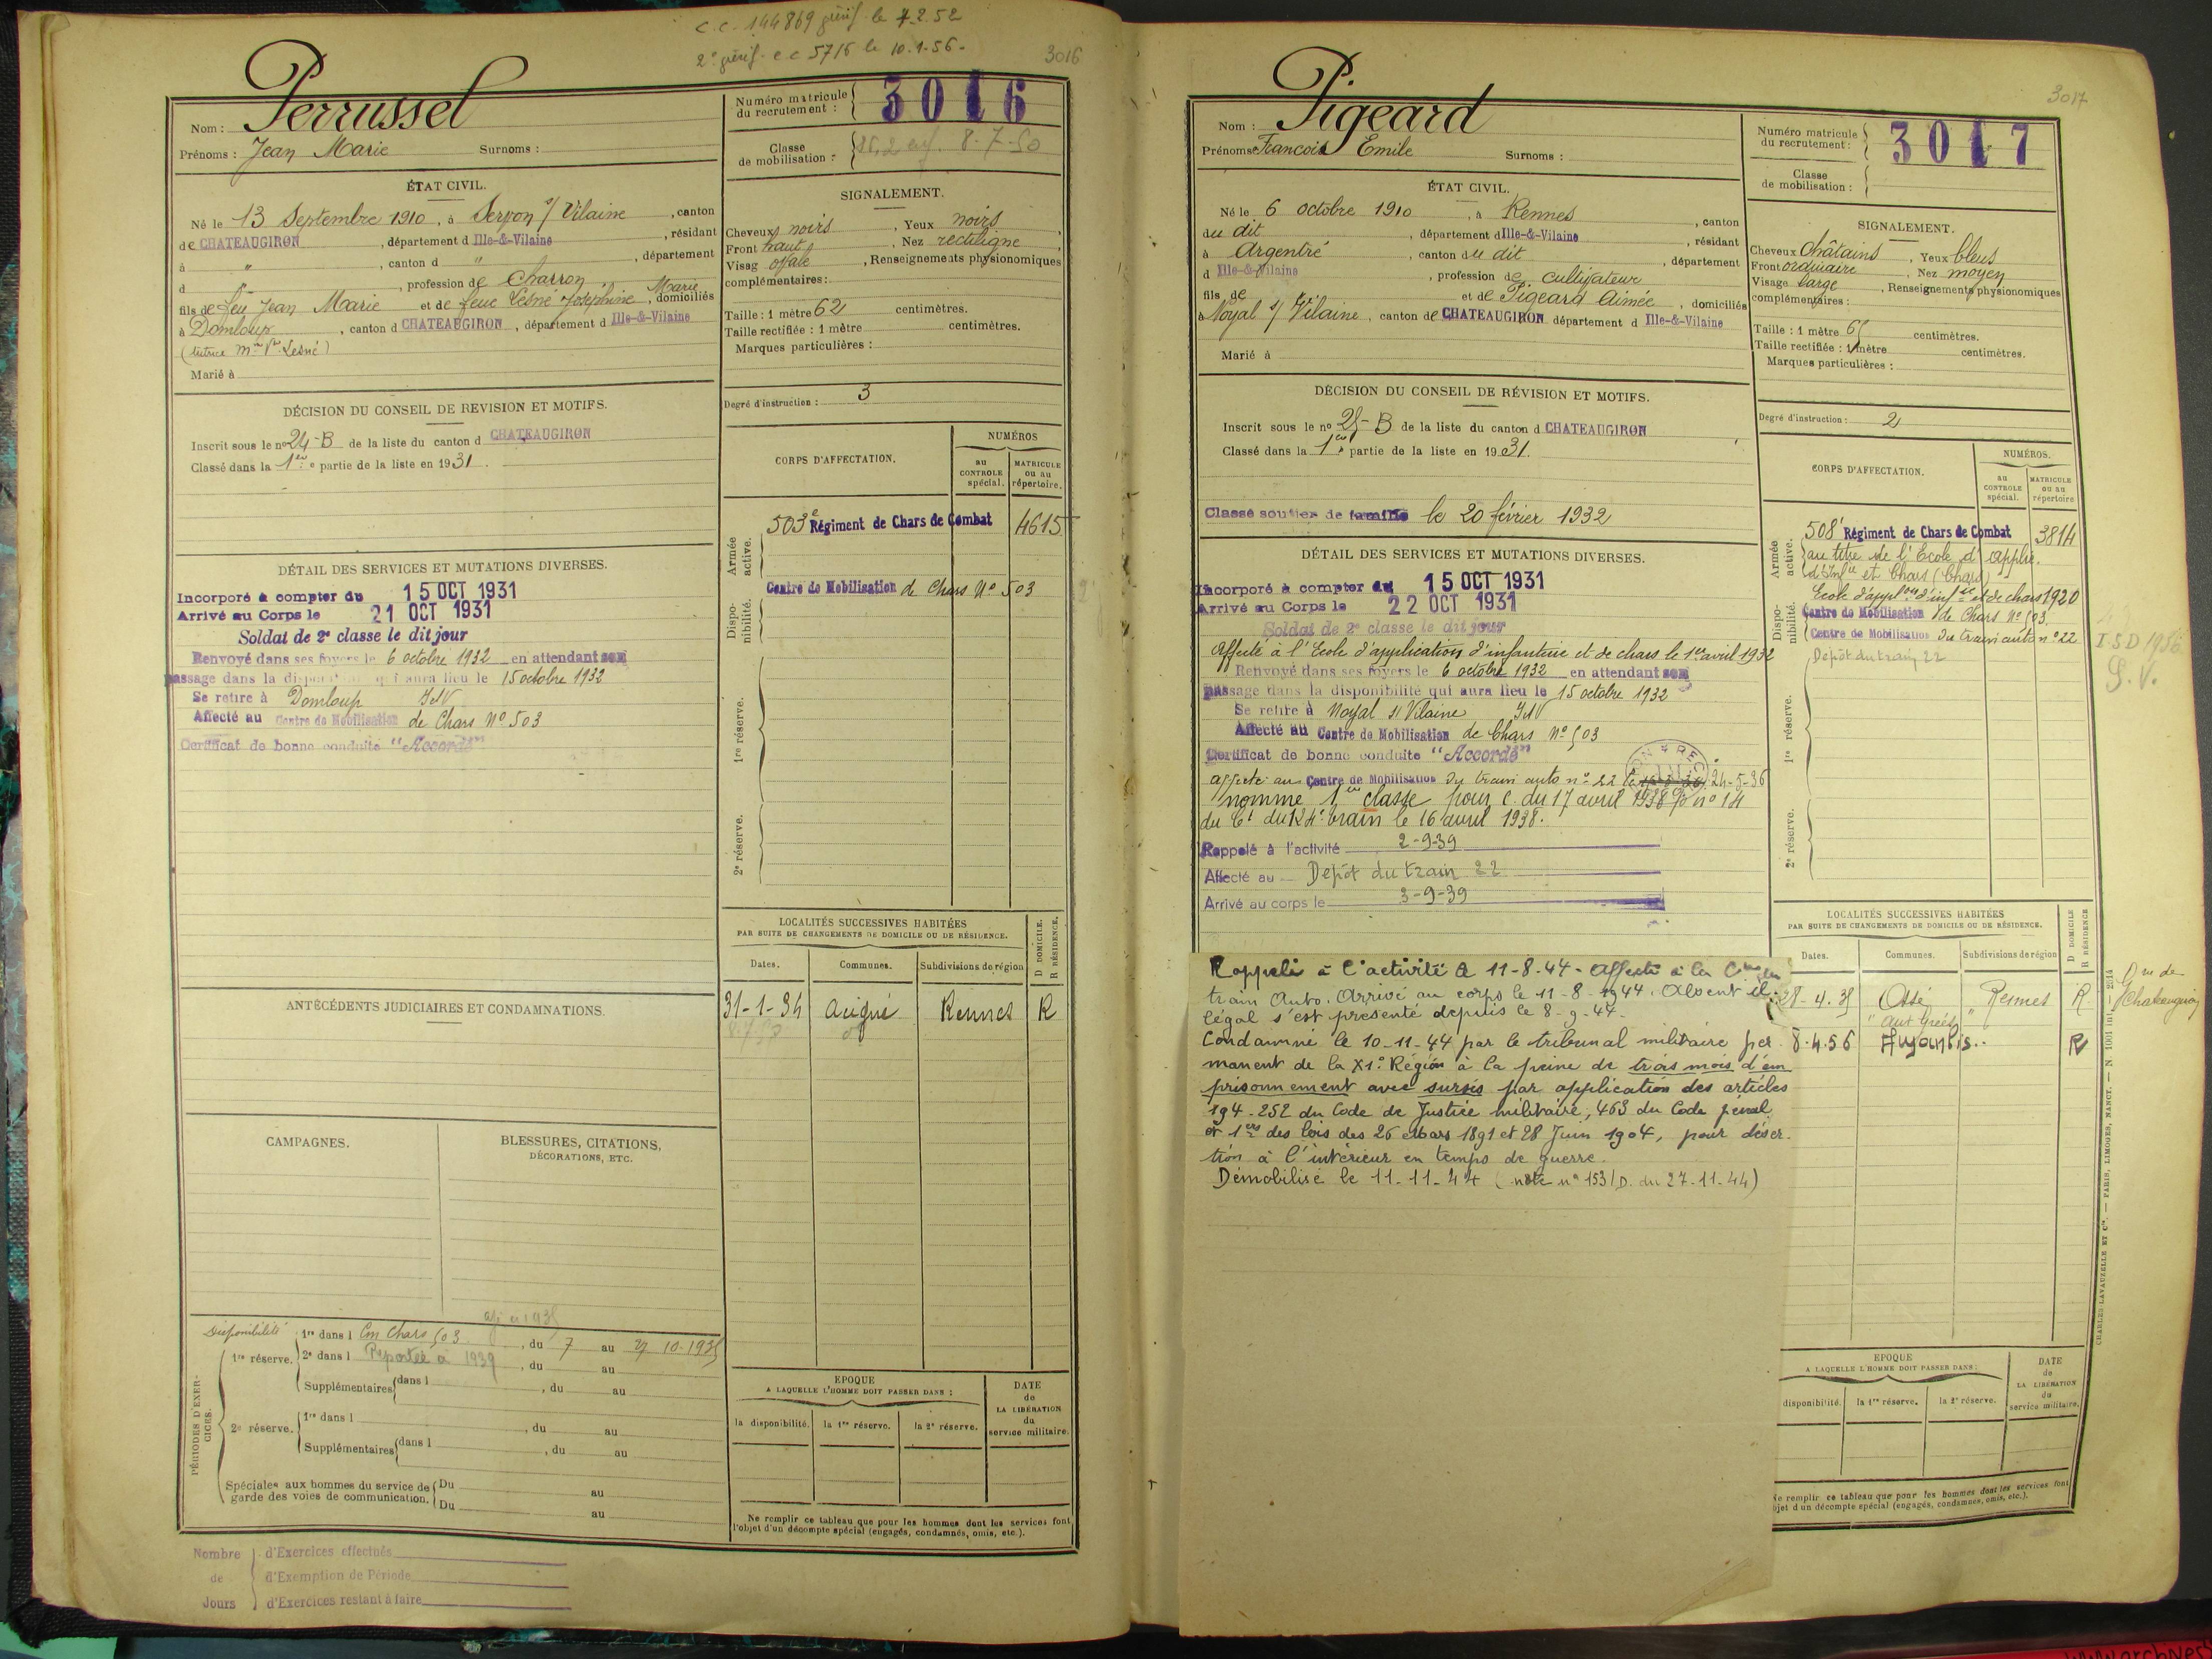 C.C. 144869 le 7.2.52
2e c c 5716 le 10.1.56
3016
Nom : Perrussel
Prénoms : Jean Marie Surnoms :
Numéro matricule du recrutement : 3016
Classe de mobilisation : 8-7-50
ÉTAT CIVIL.
Né le 13 Septembre 1910, à Servon s/ Vilaine, canton
de CHATEAUGIRON, département d Ille-&-Vilaine, résidant
à ", canton d ", département
d ", profession de Charron
fils de feu Jean Marie et de feue Lesné Joséphine Marie, domiciliés
à Domloup, canton d CHATEAUGIRON, département d Ille-&-Vilaine
(tutrice Mme Vve Lesné)
Marié à
SIGNALEMENT.
Cheveux noirs, Yeux noirs
Front haut, Nez rectiligne
Visag ovale, Renseignements physionomiques
complémentaires :
Taille : 1 mètre 62 centimètres.
Taille rectifiée : 1 mètre centimètres.
Marques particulières :
Degré d'instruction : 3
DÉCISION DU CONSEIL DE REVISION ET MOTIFS.
Inscrit sous le no 24-B de la liste du canton d CHATEAUGIRON
Classé dans la 1ère partie de la liste en 1931.
CORPS D'AFFECTATION.
NUMÉROS
au CONTROLE spécial.
MATRICULE ou au répertoire.
Armée active.
503e Régiment de Chars de Combat 4615
Disponibilité.
Centre de Mobilisation de Chars No 503
1re réserve.
2e réserve.
DÉTAIL DES SERVICES ET MUTATIONS DIVERSES.
Incorporé à compter du 15 OCT 1931
Arrivé au Corps le 21 OCT 1931
Soldat de 2e classe le dit jour
Renvoyé dans ses foyers le 6 octobre 1932 en attendant son
passage dans la disponibilité qui aura lieu le 15 octobre 1932
Se retire à Domloup I&V
Affecté au Centre de Mobilisation de Chars No 503
Certificat de bonne conduite "Accordé"
ANTÉCÉDENTS JUDICIAIRES ET CONDAMNATIONS.
LOCALITÉS SUCCESSIVES HABITÉES
PAR SUITE DE CHANGEMENTS DE DOMICILE OU DE RÉSIDENCE.
D DOMICILE.
R RÉSIDENCE.
Dates. Communes. Subdivisions de région
31-1-34 Acigné Rennes R
CAMPAGNES.
BLESSURES, CITATIONS,
DÉCORATIONS, ETC.
PÉRIODES D'EXERCICES.
Disponibilité
1re réserve. 1re dans l Cm Chars 503, du 7 au 27 10-1935
2e dans l Reportée à 1939, du au
Supplémentaires dans l, du au
2e réserve. 1re dans l, du au
Supplémentaires dans l, du au
Spéciales aux hommes du service de garde des voies de communication. Du au
Du au
EPOQUE
A LAQUELLE L'HOMME DOIT PASSER DANS :
la disponibilité. la 1re réserve. la 2e réserve.
DATE de LA LIBÉRATION du service militaire.
Ne remplir ce tableau que pour les hommes dont les services font
l'objet d'un décompte spécial (engagés, condamnés, omis, etc.).
Nombre de Jours
d'Exercices effectués
d'Exemption de Période
d'Exercices restant à faire
3017
Nom : Pigeard
Prénoms : François Emile Surnoms :
Numéro matricule du recrutement : 3017
Classe de mobilisation :
ÉTAT CIVIL.
Né le 6 octobre 1910, à Rennes, canton
du dit, département d Ille-&-Vilaine, résidant
à Argentré, canton du dit, département
d Ille-&-Vilaine, profession de cultivateur
fils de et de Pigeard Aimée, domiciliés
à Noyal s/ Vilaine, canton de CHATEAUGIRON département d Ille-&-Vilaine
Marié à
SIGNALEMENT.
Cheveux Châtains, Yeux bleus
Front ordinaire, Nez moyen
Visage large, Renseignements physionomiques
complémentaires :
Taille : 1 mètre 65 centimètres.
Taille rectifiée : 1 mètre centimètres.
Marques particulières :
Degré d'instruction : 2
DÉCISION DU CONSEIL DE RÉVISION ET MOTIFS.
Inscrit sous le no 25-B de la liste du canton d CHATEAUGIRON
Classé dans la 1ère partie de la liste en 1931.
Classé soutien de famille le 20 février 1932
CORPS D'AFFECTATION.
NUMÉROS.
au CONTROLE spécial.
MATRICULE ou au répertoire
Armée active.
508e Régiment de Chars de Combat 3814
au titre de l'Ecole d'applic.
d'Infie et Chars (Chars)
Ecole d'appl d'infie et de chars 1920
Disponibilité.
Centre de Mobilisation de Chars No 503.
Centre de Mobilisation du train auto no 22
Dépôt du train 22
1re réserve.
2e réserve.
I.S.D 1956
S.V.
DÉTAIL DES SERVICES ET MUTATIONS DIVERSES.
Incorporé à compter du 15 OCT 1931
Arrivé au Corps le 22 OCT 1931
Soldat de 2e classe le dit jour
Affecté à l'Ecole d'application d'infanterie et de chars le 1er avril 1932
Renvoyé dans ses foyers le 6 octobre 1932 en attendant son
passage dans la disponibilité qui aura lieu le 15 octobre 1932
Se retire à Noyal s/ Vilaine I&V
Affecté au Centre de Mobilisation de Chars No 503
Certificat de bonne conduite "Accordé"
Affecté au Centre de Mobilisation du train auto no 22 le 24-5-36
nommé 1ère classe pour c. du 17 avril 1938 no 14
du Ct du 124e train le 16 avril 1938.
Rappelé à l'activité 2-9-39
Affecté au Dépôt du train 22
Arrivé au corps le 3-9-39
Rappelé à l'activité le 11-8-44 - Affecté à la Cie du
train Auto. Arrivé au corps le 11-8-1944. Absent il-
légal s'est présenté depuis le 8-9-44.
Condamné le 10-11-44 par le tribunal militaire per-
manent de la XIe Région à la peine de trois mois d'em
prisonnement avec sursis par application des articles
194-252 du Code de Justice militaire, 463 du Code pénal
et 1ers des lois des 26 Mars 1891 et 28 Juin 1904, pour déser-
tion à l'intérieur en temps de guerre.
Démobilisé le 11-11-44 (note no 153/D. du 27-11-44)
LOCALITÉS SUCCESSIVES HABITÉES
PAR SUITE DE CHANGEMENTS DE DOMICILE OU DE RÉSIDENCE.
D DOMICILE
R RÉSIDENCE
Dates. Communes. Subdivisions de région
28-4.35 Ossé Rennes R
8.4.56 R
EPOQUE
A LAQUELLE L'HOMME DOIT PASSER DANS :
disponibilité. la 1re réserve. la 2e réserve.
DATE de LA LIBÉRATION du service militaire.
Ne remplir ce tableau que pour les hommes dont les services font
objet d'un décompte spécial (engagés, condamnés, omis, etc.).
CHARLES-LAVAUZELLE ET Cie. — PARIS, LIMOGES, NANCY.